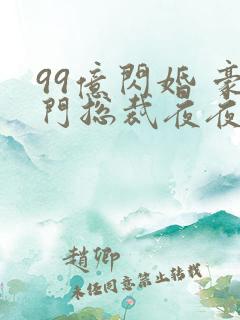 99億閃婚 豪
門總裁夜夜
趙卿
未任同意禁止轉載